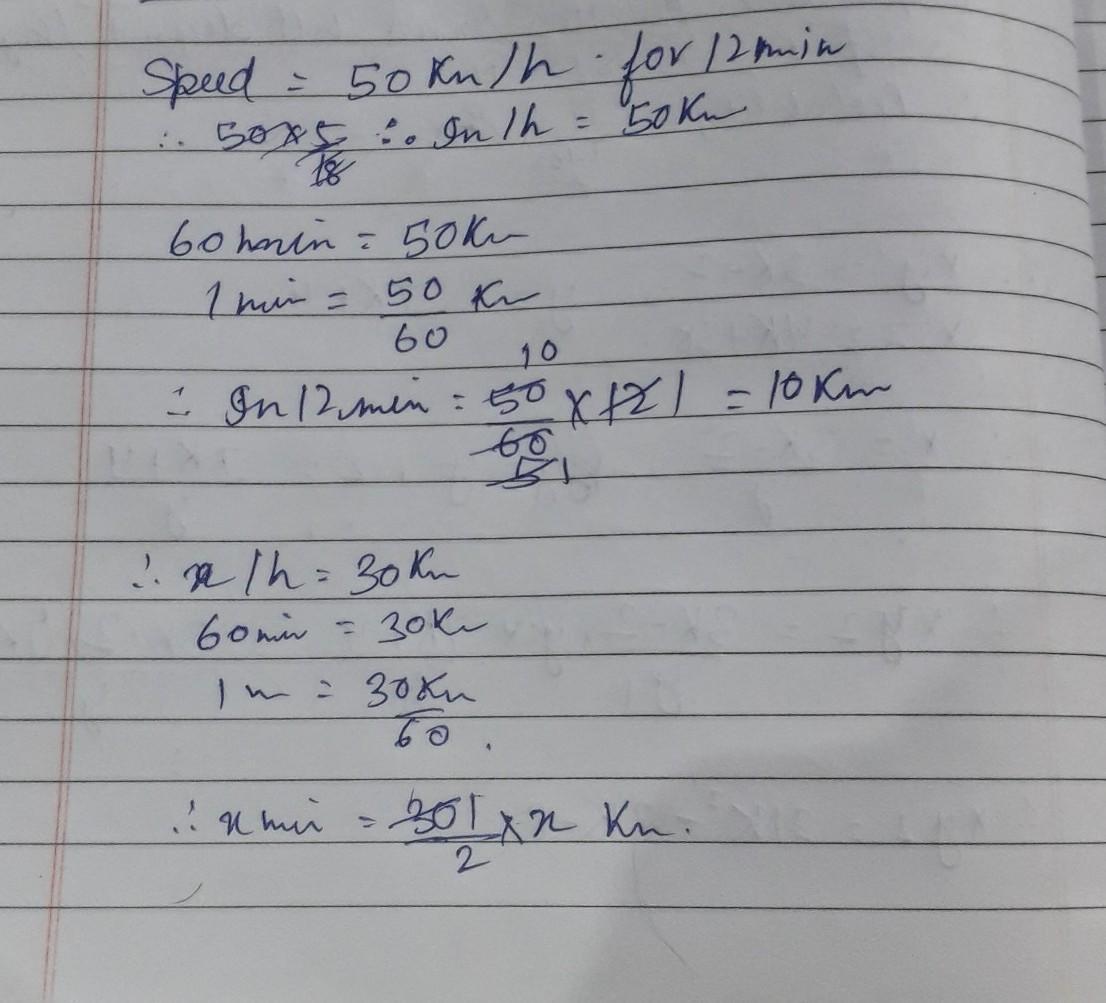 Speed = 50 Km/h . for 12 min
∴ 50×5/18 ∴ In 1h = 50 Km
60 min = 50 Km
1 min = 50/60 Km
∴ In 12 min = 50/60 × 12 10 5 1 1 = 10 Km
∴ x/h = 30 Km
60 min = 30 Km
1 m = 30 Km/60 .
∴ x min = 30 1/2 × x Km.